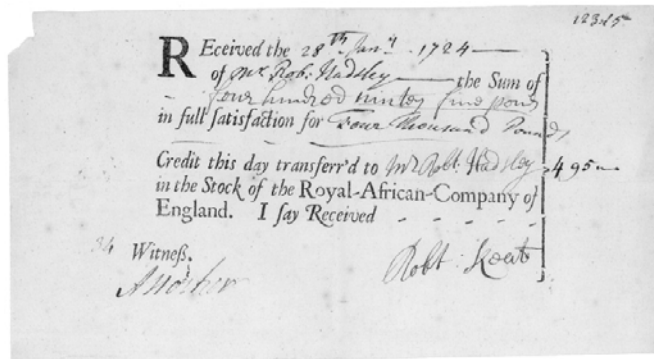 REceived the 28th Janry. 1724
of Mr. Rob. Hadsley the Sum of
four hundred ninley five pou
in full satisfaction for Four thousand Pounds
Credit this day transferr'd to Mr Robt. Hadsley 495
in the Stock of the Royal-African-Company of
England. I say Received
34 Witneß.
Robt Keat